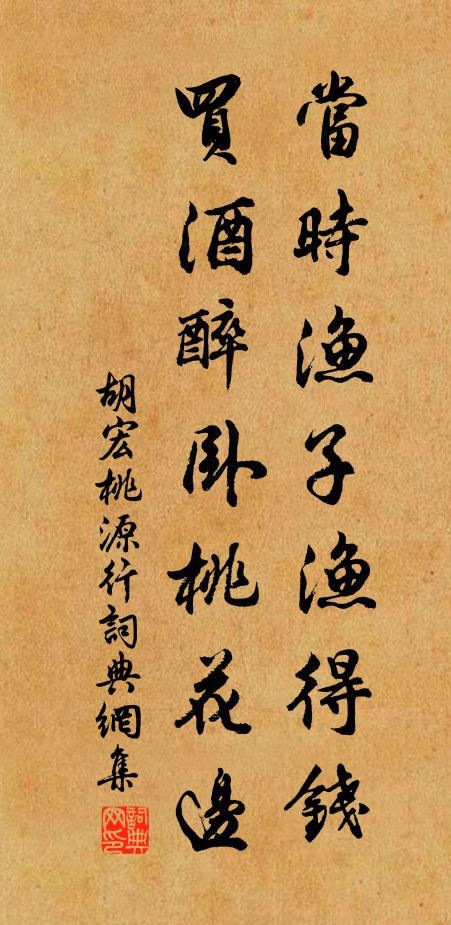 當時漁子漁得錢
買酒醉卧桃花邊
胡宏桃源行詞典網集
詞典网印